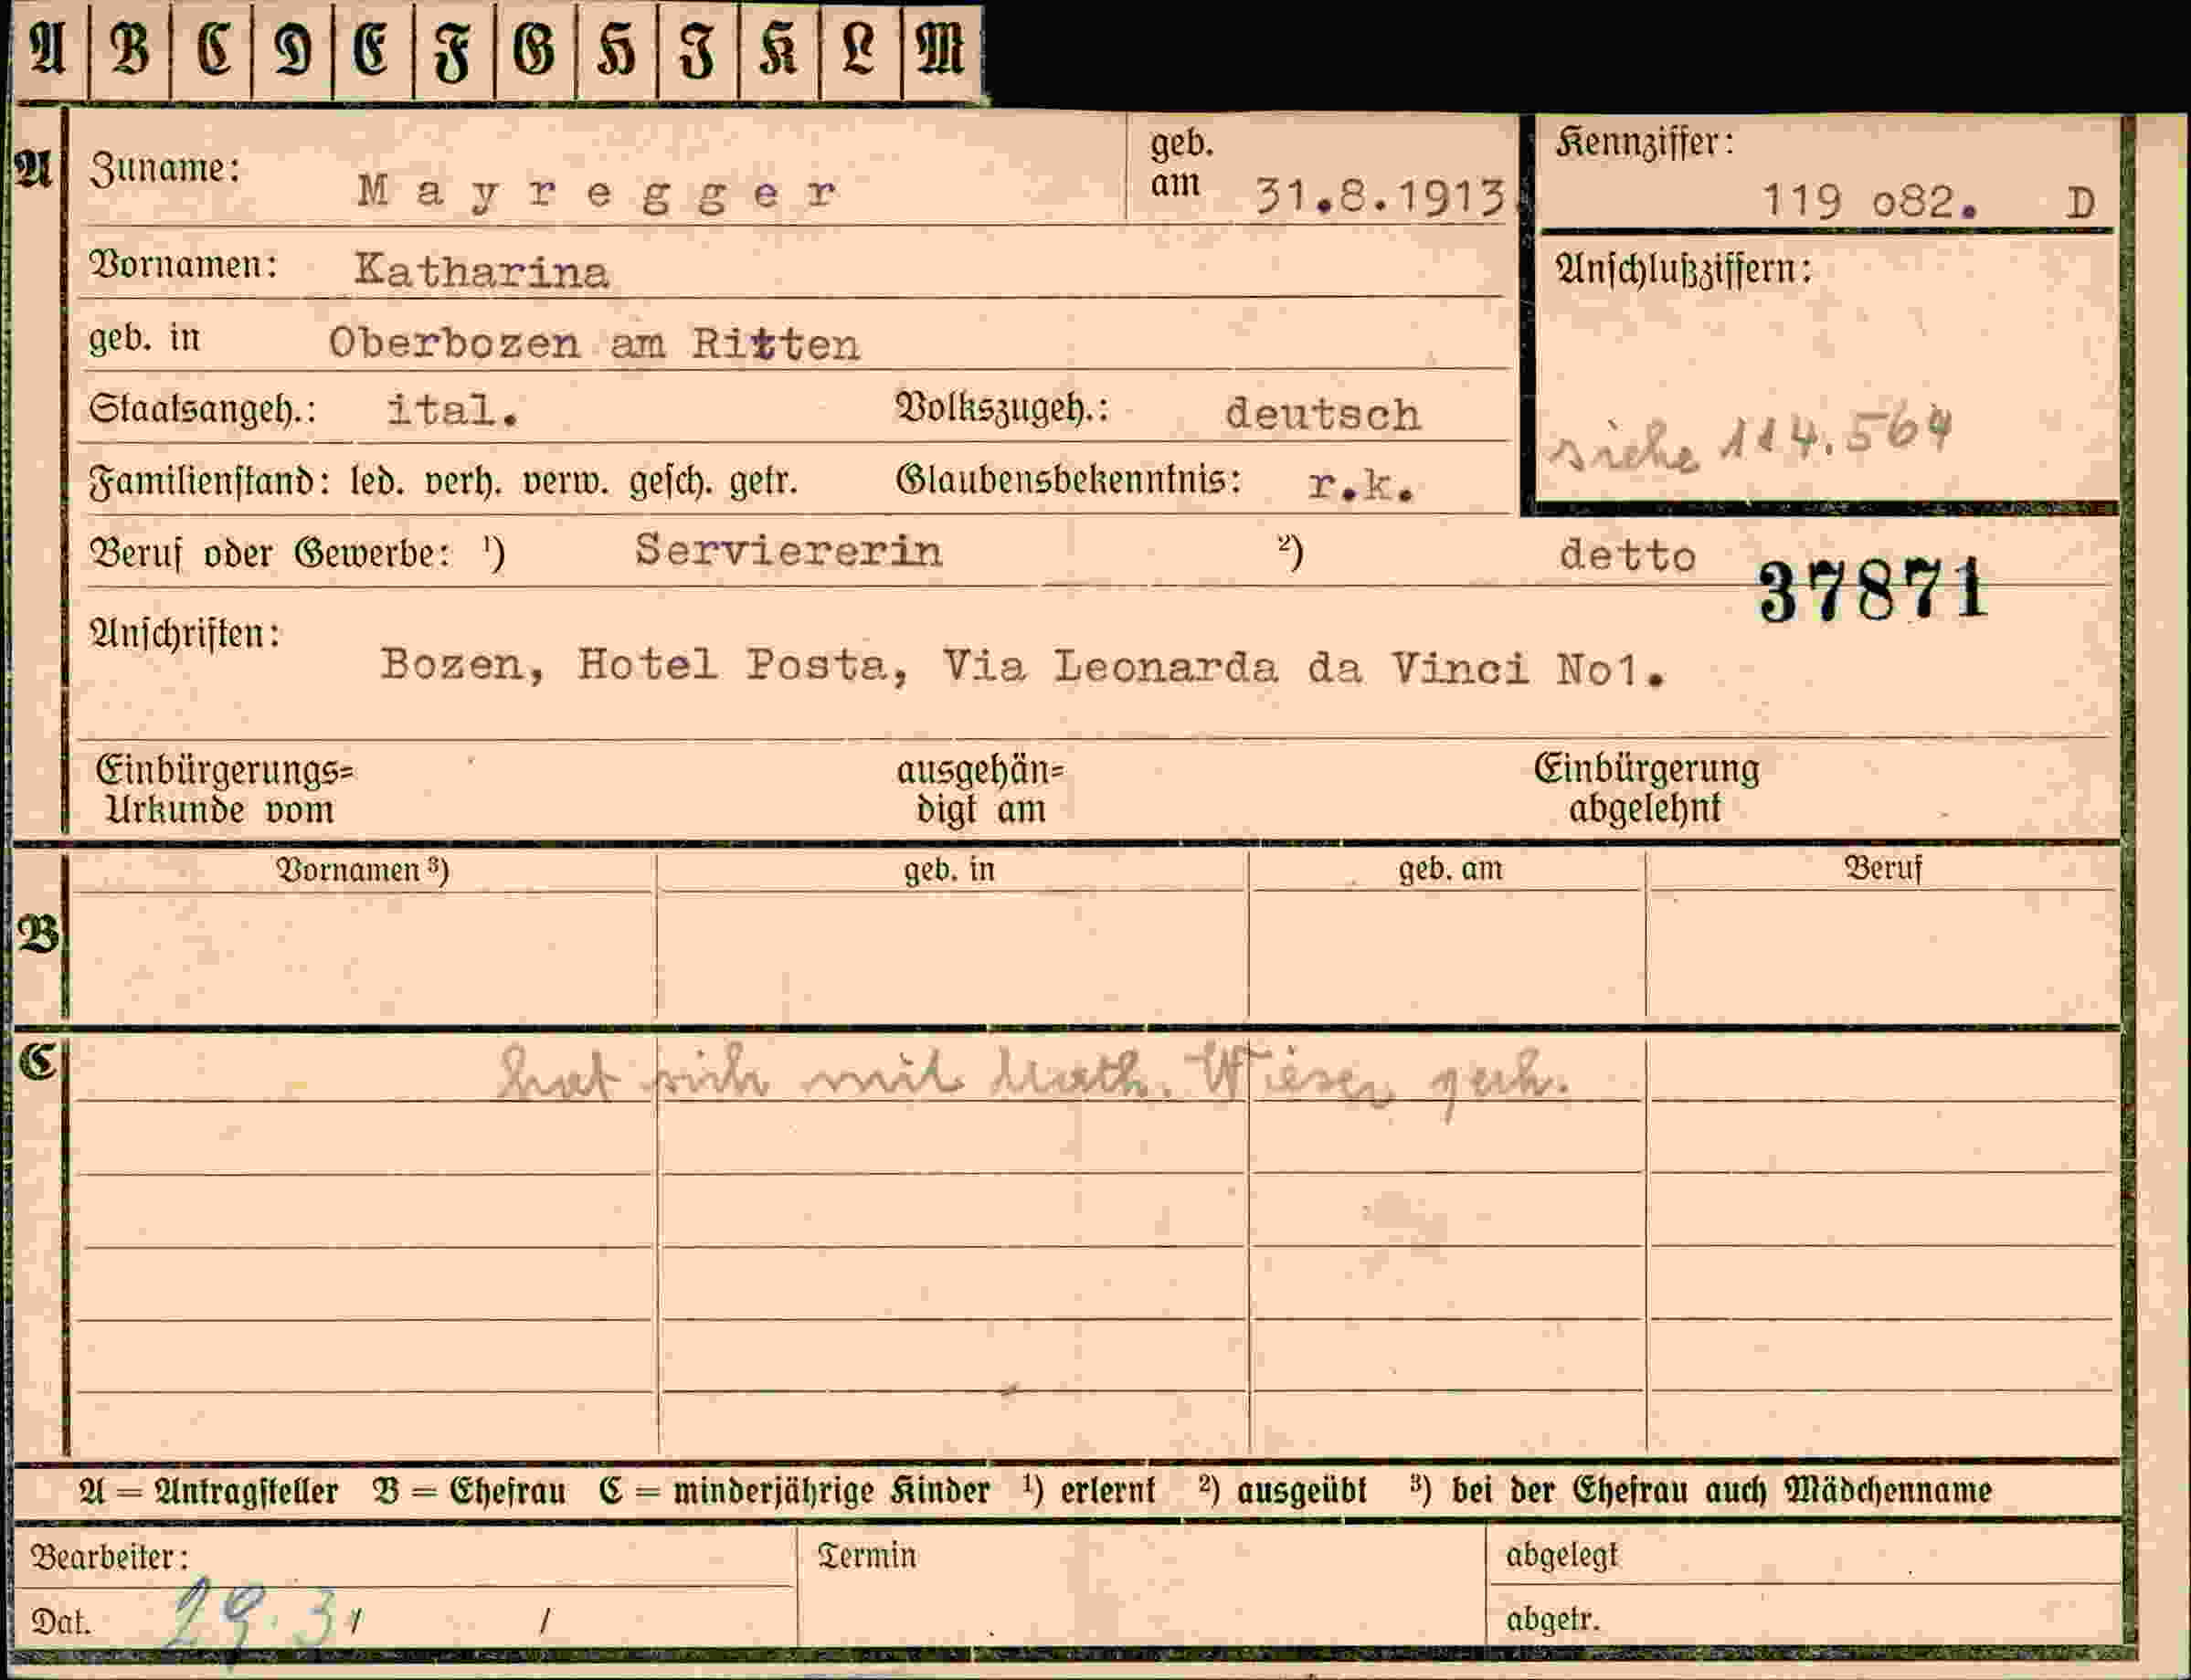 A B C D E F G H I K L M
A Zuname: Mayregger geb. am 31.8.1913 Kennziffer: 119 o82. D
Vornamen: Katharina Anschlußziffern:
geb. in Oberbozen am Ritten
Staatsangeh.: ital. Volkszugeh.: deutsch siehe 114.564
Familienstand: led. verh. verw. gesch. getr. Glaubensbekenntnis: r.k.
Beruf oder Gewerbe: ¹) Serviererin ²) detto 37871
Anschriften:
Bozen, Hotel Posta, Via Leonarda da Vinci No1.
Einbürgerungs= ausgehän= Einbürgerung
Urkunde vom digt am abgelehnt
Vornamen ³) geb. in geb. am Beruf
B
C hat sich mit Math. Wieser
A = Antragsteller B = Ehefrau C = minderjährige Kinder ¹) erlernt ²) ausgeübt ³) bei der Ehefrau auch Mädchenname
Bearbeiter: Termin abgelegt
Dat. 29.3 / / abgetr.